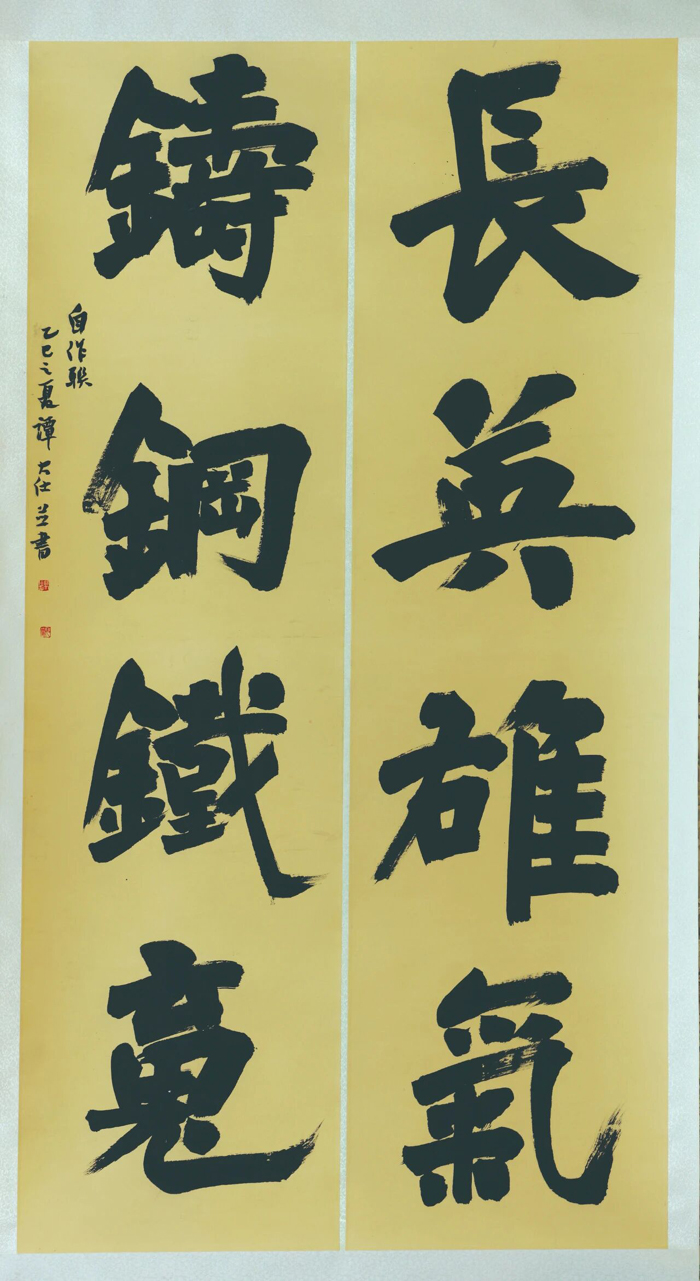 長英雄氣
鑄鋼鐵䰟
自作聯
乙巳之夏譚大仕並書